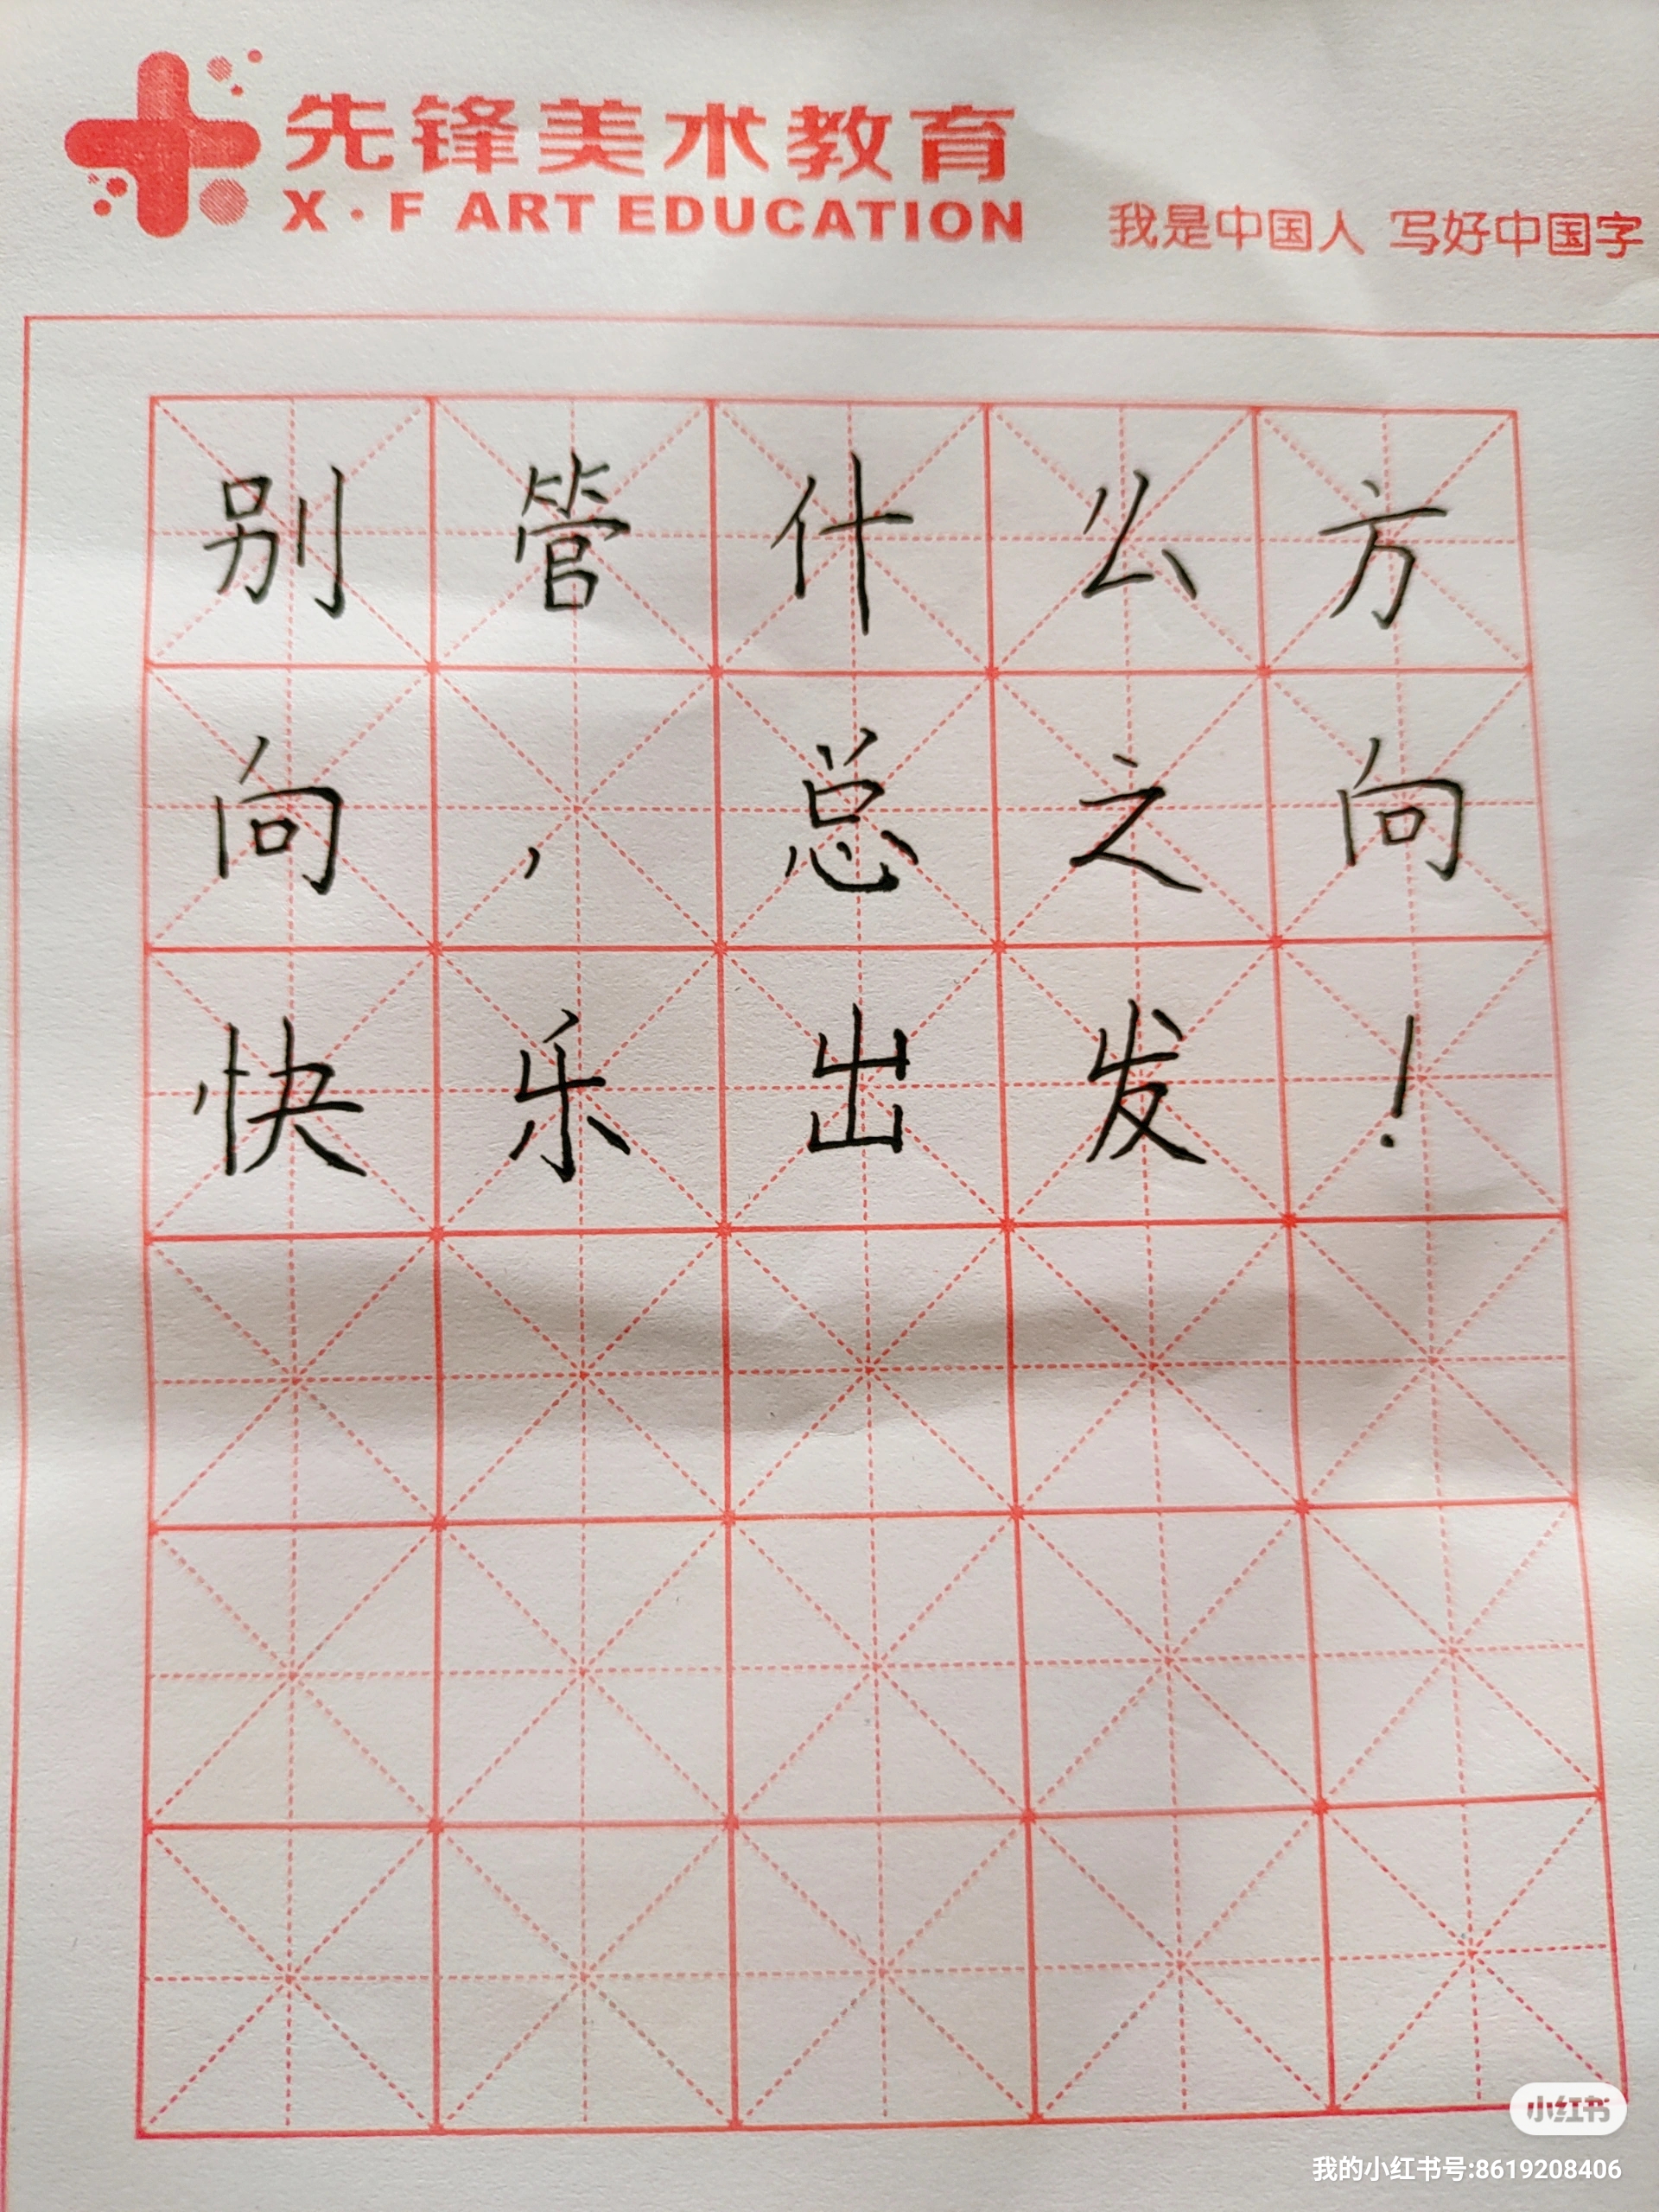 先锋美术教育
X·F ART EDUCATION
我是中国人 写好中国字
别管什么方
向，总之向
快乐出发！
小红书
我的小红书号:8619208406